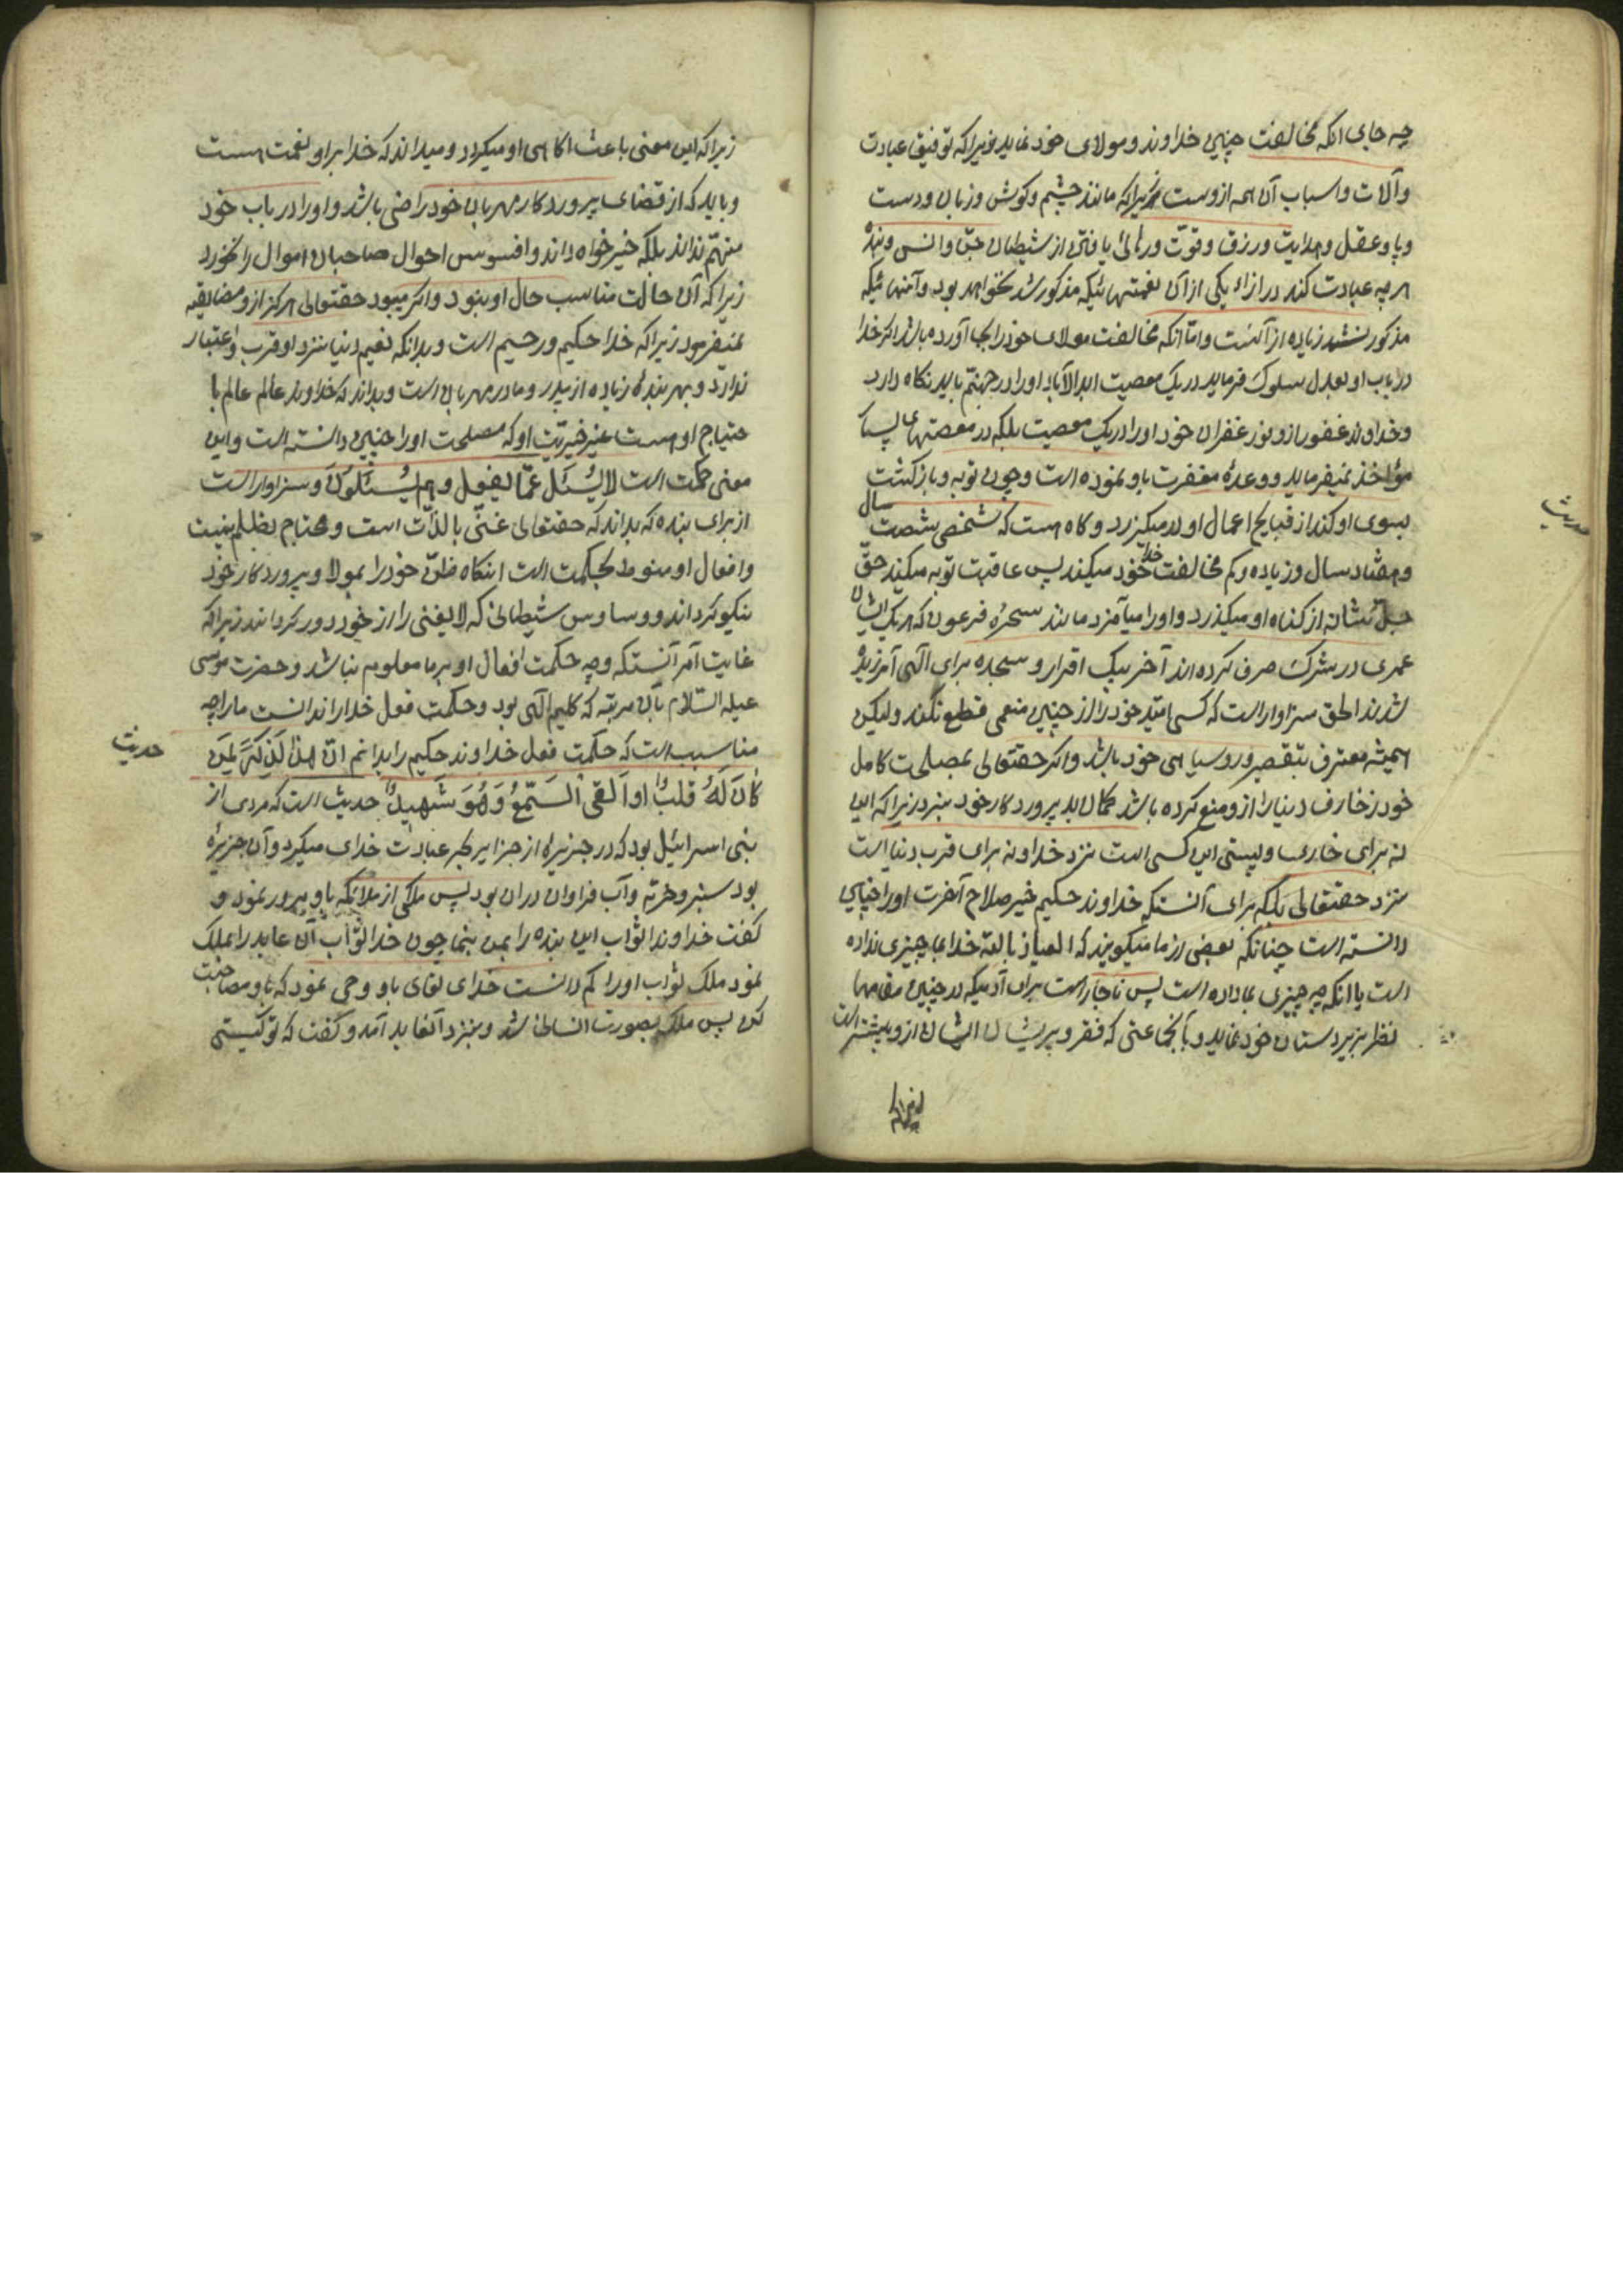 چه جای انکه مخالفت چنین خداوند و مولای خود نماید زیراکه توفیق عبادت
و آلات و اسباب آن همه ازوست زیراکه مانند چشم و کوش و زبان و دست
و پا و عقل و هدایت و رزق و قوّت و رهائی یافتن از شیطان جنّ و انس و بنده
هر چه عبادت کند در ازاء یکی از آن نعمتهائیکه مذکور شد نخواهد بود و آنهائیکه
مذکور نشد زیاده از آنست و امّا انکه مخالفت مولای خود را بجا آورده باشد اکر خدا
در باب او بعدل سلوک فرماید در یک معصیت ابدالآباد او را در جهنّم باید نکاه دارد
و خداوند غفور از وفور غفران خود او را در یک معصیت بلکه در معصتهای بسیار
مؤاخذ نمیفرماید و وعدهٔ مغفرت باو نموده است و چون توبه و بازکشت
بسوی او کند از قبایح اعمال او در میکزرد و کاه هست که شخصی شصت سال
و هفتاد سال و زیاده و کم مخالفت خدا خود میکند پس عاقبت توبه میکند حقّ
جلّ شانه از کناه او میکذرد و او را میآمرزد مانند سحرهٔ فرعون که هر یک ایشان
عمری در شرک صرف کرده اند آخر بیک اقرار و سجده برای الهی آمرزیده
شدند الحق سزاوار است که کسی امّید خود را از چنین منعمی قطع نکند ولیکن
همیشه معترف بتقصیر و روسیاهی خود باشد و اکر حقتعالی بمصلحت کامل
خود زخارف دنیا را ازو منع کرده باشد کمان بد به پروردکار خود نبرد زیراکه این
نه برای خاری و پستی این کسی است نزد خدا و نه برای قرب دنیا است
نزد حقتعالی بلکه برای آنستکه خداوند حکیم خیر صلاح آخرت او را چنین
دانسته است چنانکه بعضی از ما میکویند که العیاذ بالله خدا بما چیزی نداده
است یا انکه چه چیزی بما داده است پس ناچار است برای آدمیکه در چنین مقامها
نظر بزیر دستان خود نماید و بآنجماعتی که فقر و پریشانی ایشان ازو بیشتر است
زیراکه
حدیث
زیراکه این معنی باعث اکاهی او میکردد و میداند که خدا بر او نعمت هست
و باید که از قضای پروردکار مهربان خود راضی باشد و او را در باب خود
متهّم نداند بلکه خیرخواه داند و افسوس احوال صاحبان اموال را نخورد
زیراکه آن حالت مناسب حال او نبود و اکر میبود حقتعالی هرکز ازو مضایقه
نمیفرمود زیراکه خدا حکیم و رحیم است و بدانکه نعیم دنیا نزد او قرب و اعتبار
ندارد و بهر بندهٔ زیاده از پدر و مادر مهربان است و بداند که خداوند عالم عالم با
حتیاج او هست غیر خیریّت او که مصلحت او را چنین دانسته است و این
معنی حکمت است لا یُسئَل عمّا یفعل و هم یُسئَلون و سزاوار است
از برای بنده که بداند که حقتعالی غنیّ بالذّات است و محتاج بظلم نیست
و افعال او منوط بحکمت است انکاه ظنّ خود را بمولا و پروردکار خود
نیکو کرداند و وساوس شیطانی که لا یغنی را از خود دور کرداند زیراکه
غایت آمر آنستکه وجه حکمت افعال او بر ما معلوم نباشد و حضرت موسی
علیه السّلام بآن مرتبه که کلیم الهی بود و حکمت فعل خدا را ندانست ما را چه
مناسب است که حکمت فعل خداوند حکیم را بدانیم انّ هذا لَذِکریٰ لِمَن
کانَ لَهُ قلبٌ او اَلقی اَلسَّمعَ وَ هُوَ شَهیدٌ حدیث است که مردی از
بنی اسرائیل بود که در جزیرهٔ از جزایر بحر عبادت خدای میکرد و آن جزیرهٔ
بود سبز و خرّم و آب فراوان در ان بود پس ملکی از ملائکه باو مرور نمود و
کفت خداوندا ثواب این بنده را بمن بنما چون خدا ثواب آن عابد را بملک
نمود ملک ثواب او را کم دانست خدای تعالی باو وحی نمود که باو مصاحبت
کن پس ملک بصورت انسانی شد و بنزد آنعابد آمد و کفت که تو کیستی
حدیث